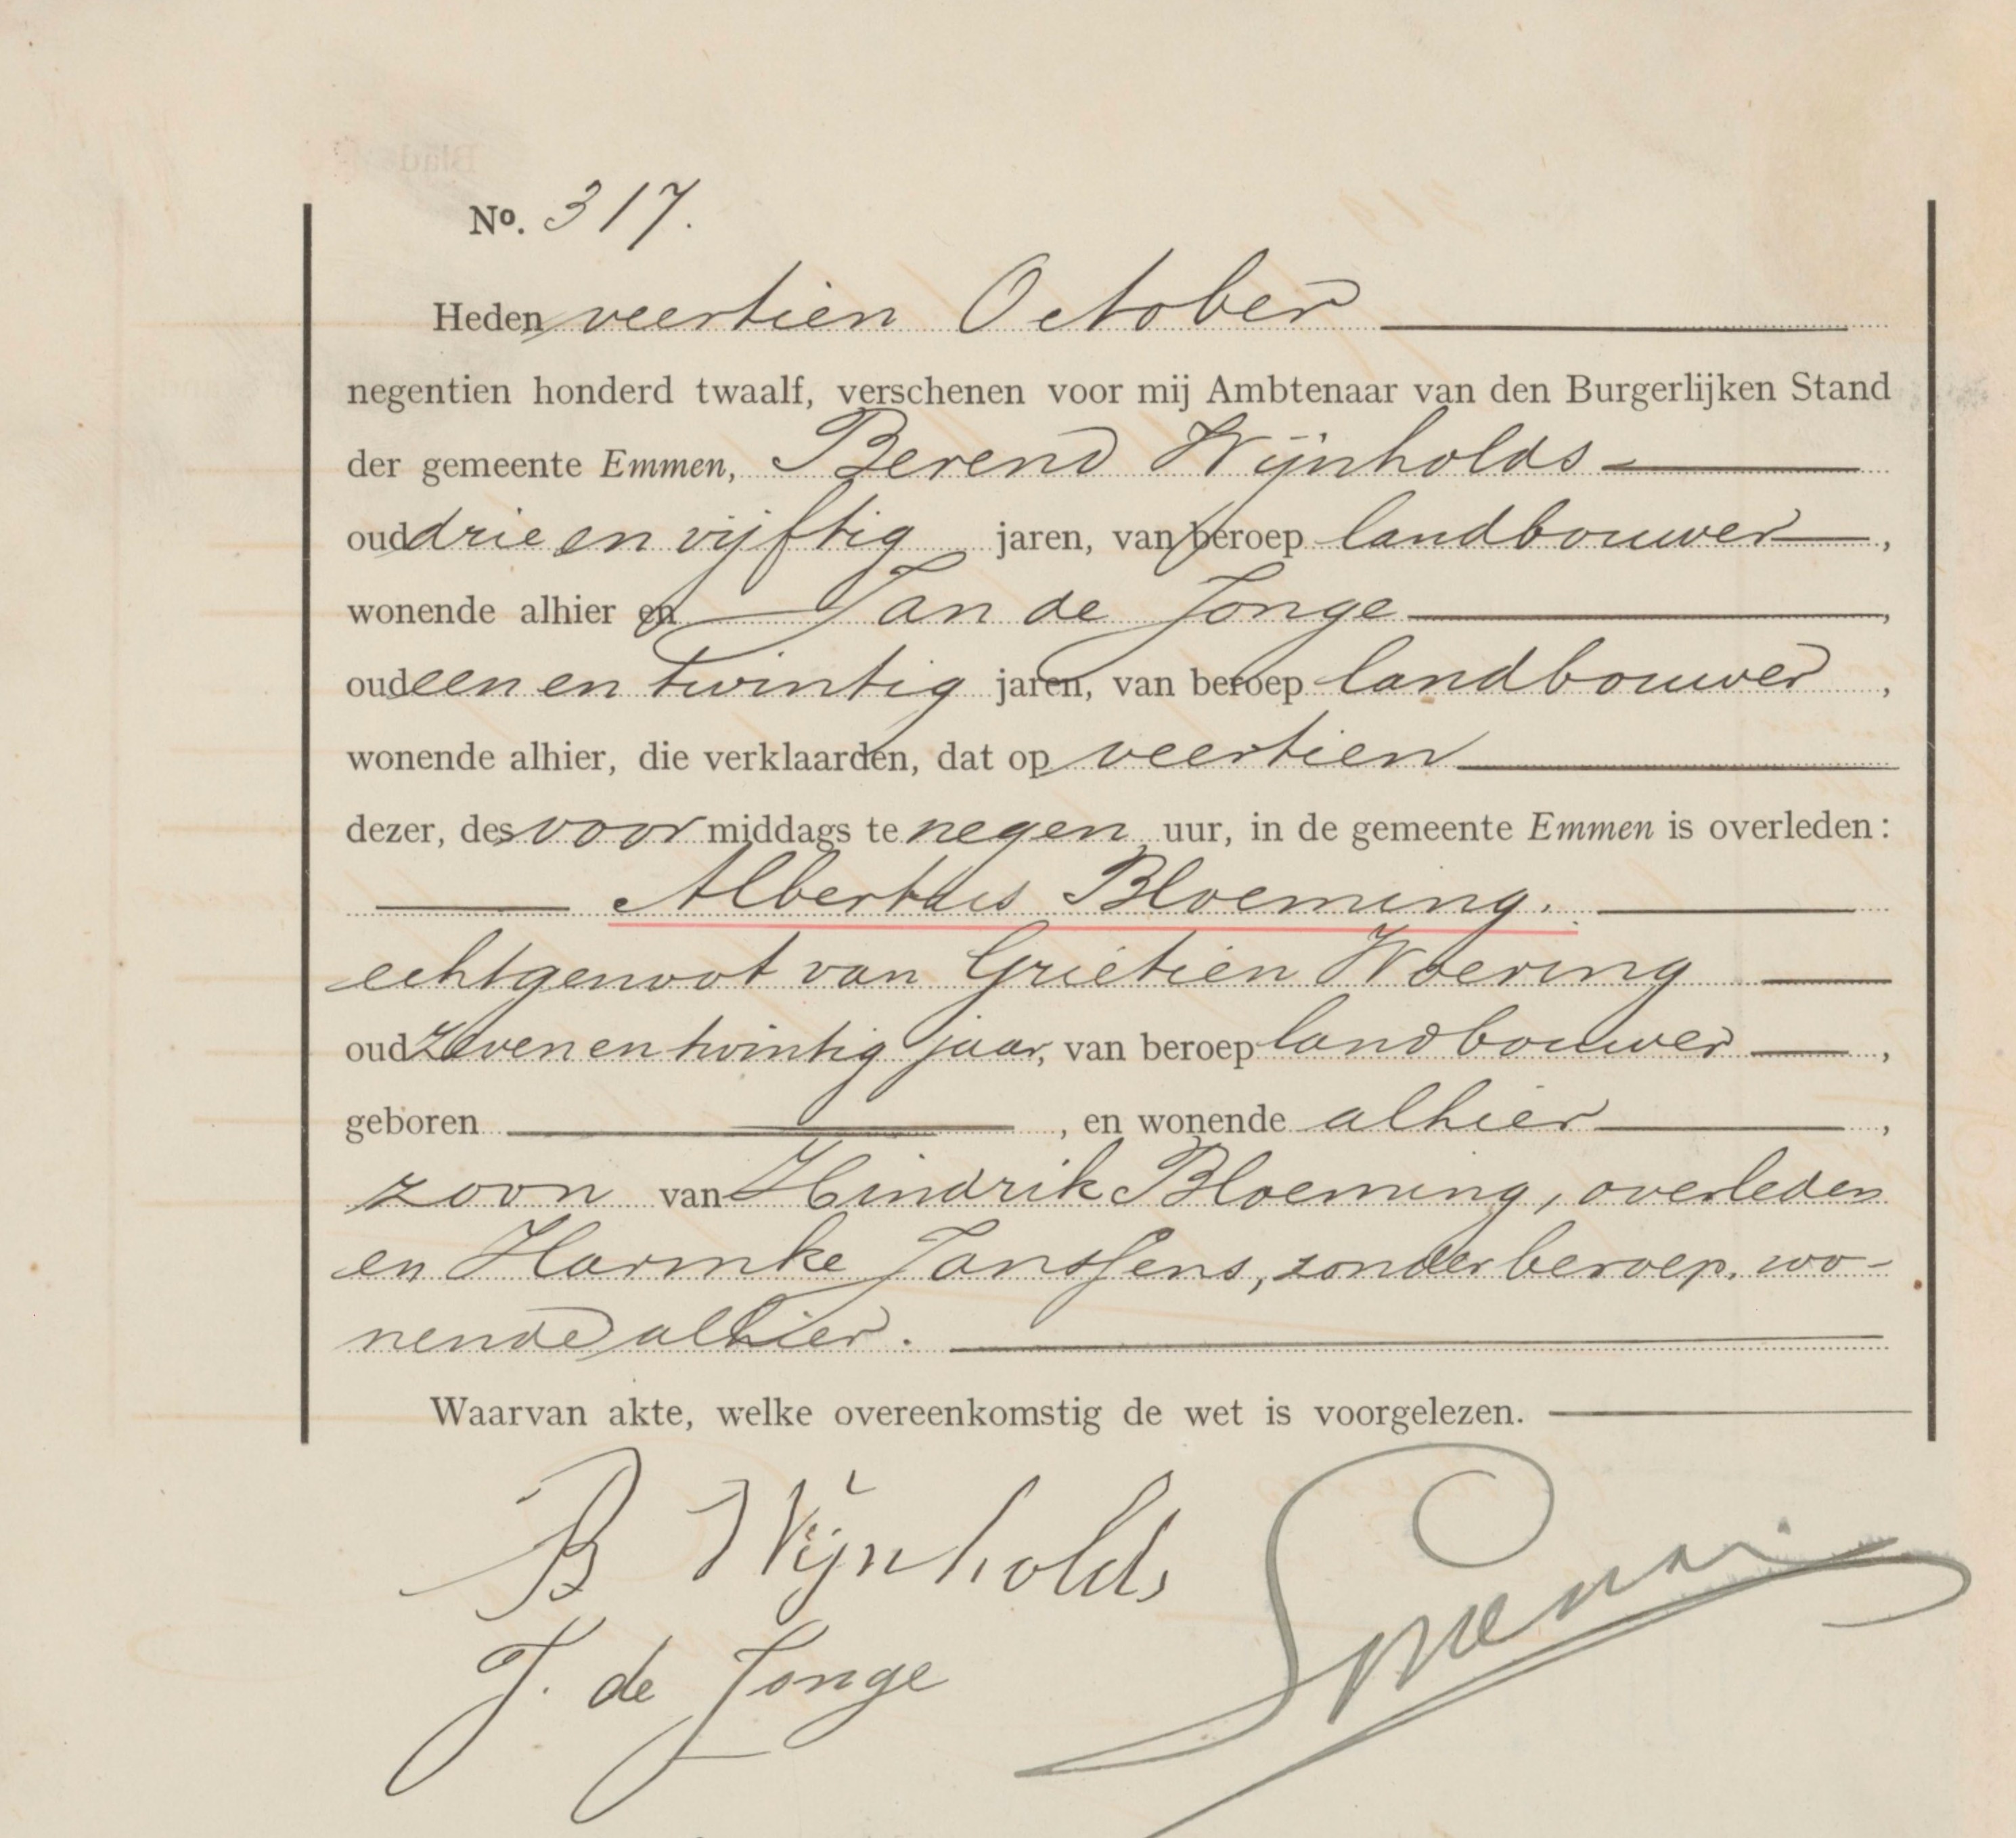 No. 317.
Heden veertien October
negentien honderd twaalf, verschenen voor mij Ambtenaar van den Burgerlijken Stand
der gemeente Emmen, Berend Wijnholds
oud drie en vijftig jaren, van beroep landbouwer,
wonende alhier en Jan de Jonge,
oud een en twintig jaren, van beroep landbouwer,
wonende alhier, die verklaarden, dat op veertien
dezer, des voor middags te negen uur, in de gemeente Emmen is overleden:
Albertus Bloeming.
echtgenoot van Grietien Woering
oud zeven en twintig jaar, van beroep landbouwer,
geboren, en wonende alhier,
zoon van Hindrik Bloeming, overleden
en Harmke Janssens, zonder beroep, wo-
nende alhier.
Waarvan akte, welke overeenkomstig de wet is voorgelezen.
B Wijnholds
J. de Jonge